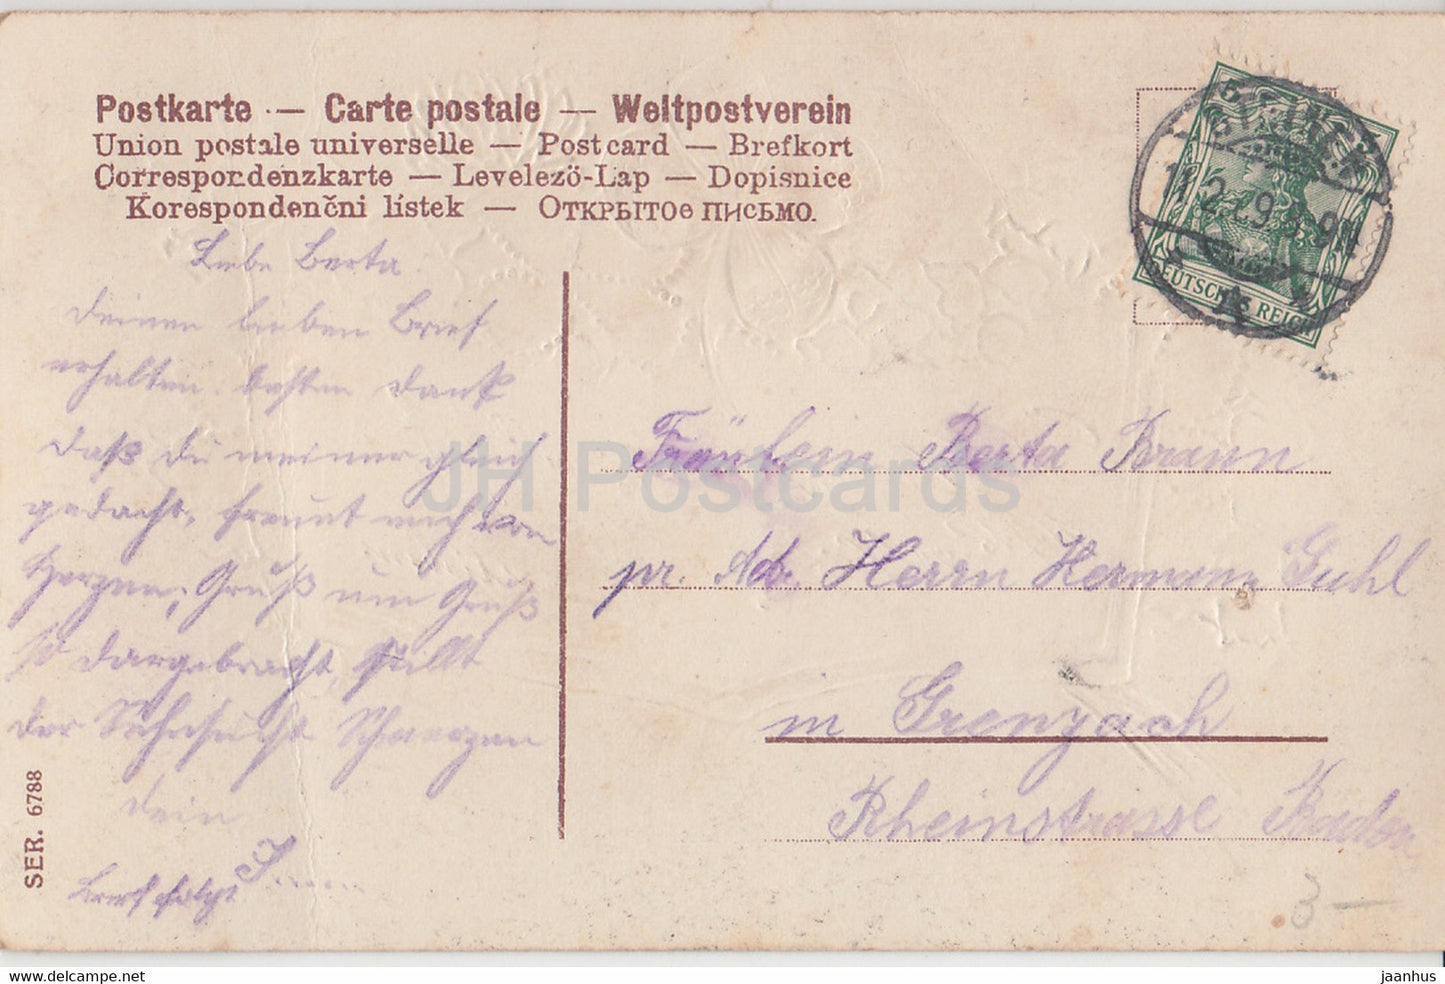 Postkarte — Carte postale — Weltpostverein
Union postale universelle — Postcard — Brefkort
Correspondenzkarte — Levelezö-Lap — Dopisnice
Korespondenčni lístek — Открытое письмо.
Liebe Berta
Deinen lieben Brief
erhalten. besten Dank
daß du meiner gleich
gedacht, freut mich von
Herzen, Gruß um Gruß
dargebracht, stillt
der Sehnsucht Schmerzen
Dein
J.....
Brief folgt
SER. 6788
DEUTSCHES REICH
11.2.09
Fräulein Berta Braun
pr. Adr. Herrn Hermann Guhl
in Grenzach
Rheinstrasse Baden
3 —
JH Postcards
delcampe.net
jaanhus